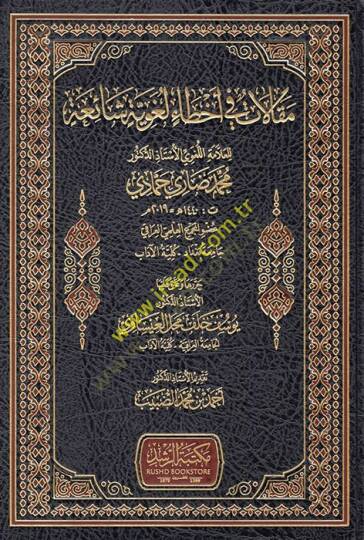 مقالات في أخطاء لغوية شائعة
للعلامة اللغوي الأستاذ الدكتور
محمد ضاري حمادي
ت: ١٤٤٠هـ = ٢٠١٩م
عضو المجمع العلمي العراقي
جامعة بغداد - كلية الآداب
حررها وعلق عليها
الأستاذ الدكتور
يوسف خلف محل العيساوي
الجامعة العراقية - كلية الآداب
تقديم الأستاذ الدكتور
أحمد بن محمد الضبيب
مكتبة الرشد
RUSHD BOOKSTORE
1979 1399